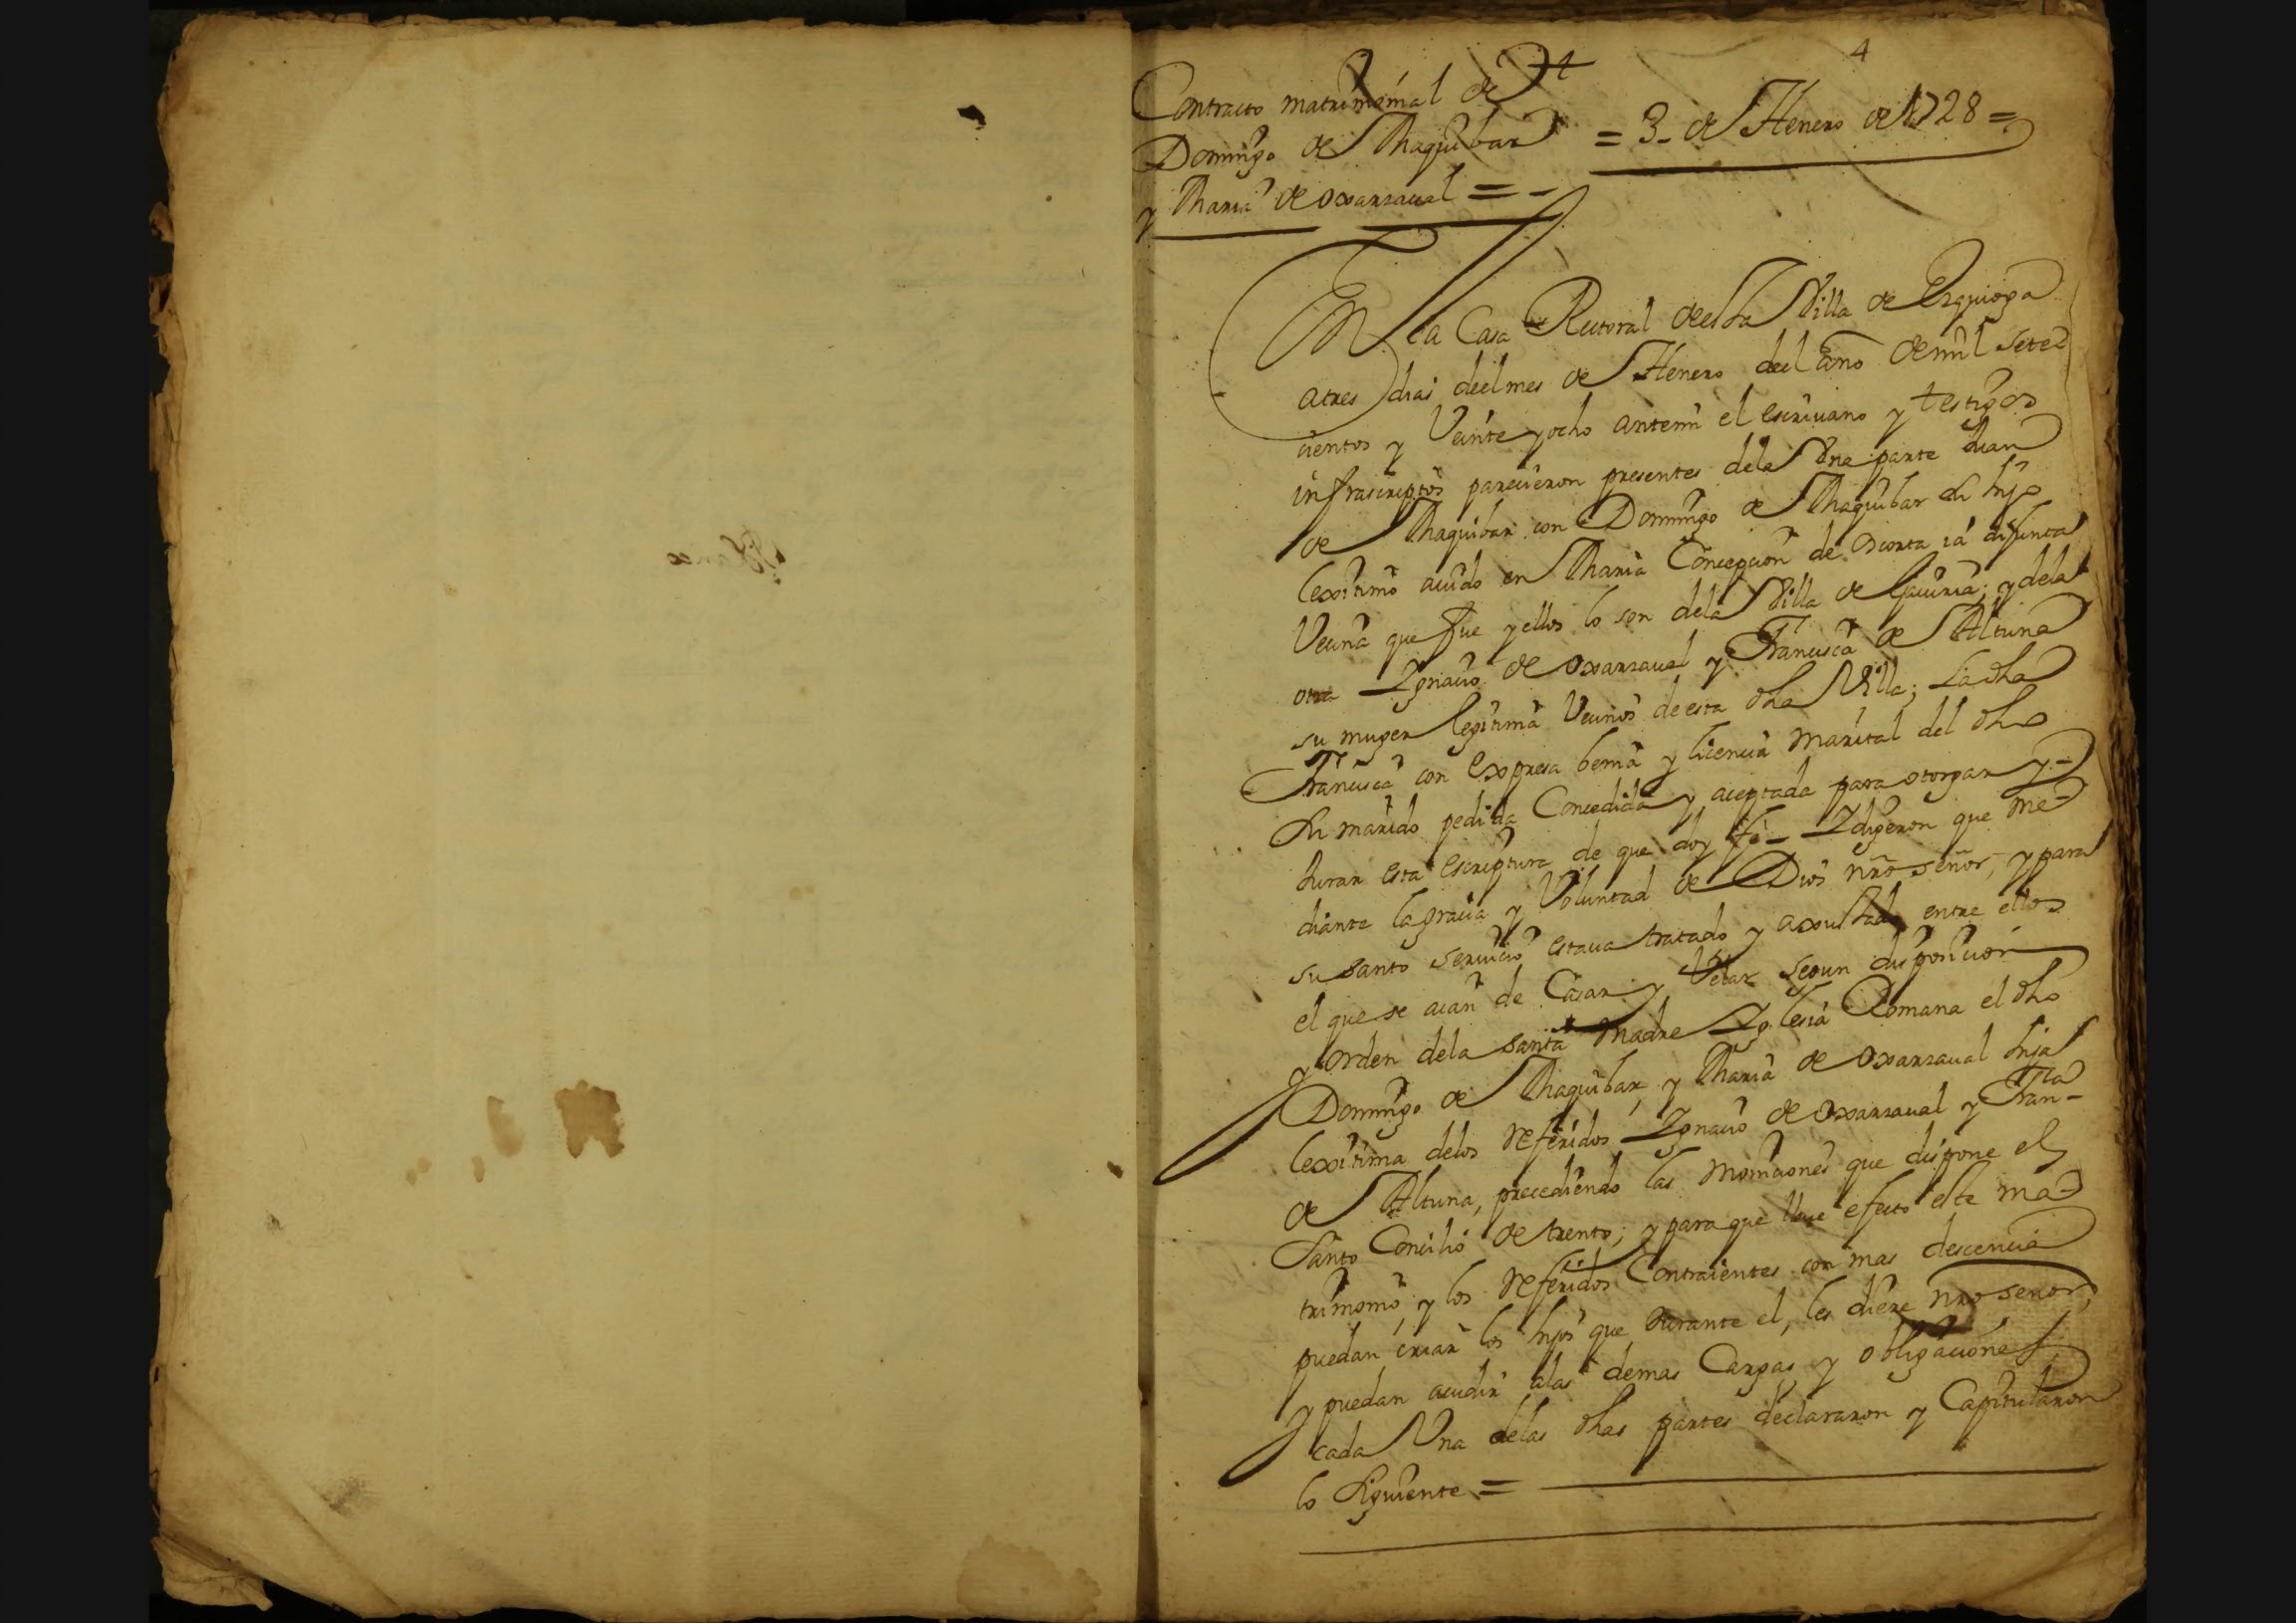 4
Contracto matrimonial de
Domingo de Maquibar
y Maria de oxarzaual = -
= 3 - de Henero de 1728 =
En la Casa Rectoral desta Villa de Ezquioga
a tres dias deel mes de Henero deel año de mil sete
cientos y Veinte y ocho antemi el escriuano y testigos
infrascriptos parecieron presentes dela Vna parte Juan
de Maquibar con Domingo de Maquibar su hijo
lexitimo auido en Maria Concepcion de ia difunta
Vecina que fue y ellos lo son dela Villa de Gauiria; y dela
otra Ignacio de oxarzaual y Francisca de Altuna
su muger legitima Vecinos de esta dha Villa; La dha
Francisca con expresa licencia marital del dho
su marido pedida Concedida y aceptada para otorgar y -
Jurar esta escriptura de que doy fe - I digeron que me
diante la gracia y Voluntad de Dios nro señor, y para
su santo seruicio estaua tratado y axustado entre ellos
el que se aian de Casar y Velar segun disposicion
y orden dela santa Madre Iglesia Romana el dho
Domingo de Maquibar, y Maria de oxarzaual hija
lexitima delos referidos Ignacio de oxarzaual y Fran-ca
de Altuna, precediendo las moniciones que dispone el
Santo Concilio de trento; y para que lleue efecto este ma
trimonio, y los referidos Contraientes con mas descencia
puedan criar los hijos que durante el, les diere nro señor,
y puedan acudir alas demas Cargas y obligaciones
cada Vna delas dhas partes declararon y Capitularon
lo siguiente =